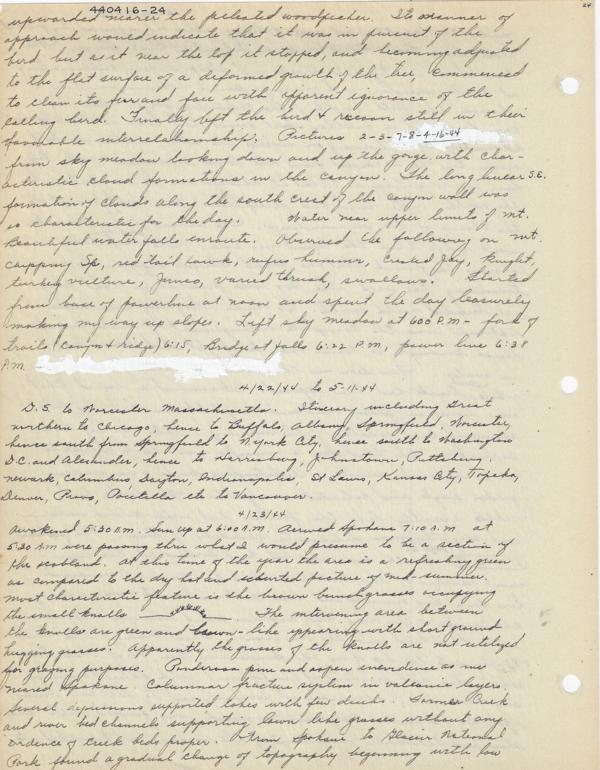 440416-24
24
upwarded nearer the pileated woodpecker. Its manner of
approach would indicate that it was in pursuit of the
bird but as it near the top it stopped, and becoming adjusted
to the flat surface of a deformed growth of the tree, commenced
to clean its fur and face with apparent ignorance of the
calling bird. Finally left the bird & racoon still in their
favorable interrelationship. Pictures 2-3-7-8-4-16-44
from sky meadow looking down and up the gorge with char-
acteristic cloud formations in the canyon. The long linear S.E.
formation of clouds along the south crest of the canyon wall was
so characteristic for the day. Water near upper limits of mt.
Beautiful water falls enroute. Observed the following on mt.
chipping Sp, red tail hawk, rufus hummer, crested Jay, Knight,
turkey vulture, Junco, varied thrush, swallows. Started
from base of powerline at noon and spent the day leasurely
making my way up slopes. Left sky meadow at 600 P.M - fork of
trails (canyon & ridge) 6:15, Bridge at falls 6:22 P.M, power line 6:38
P.M.
4/22/44 to 5-11-44
D.S. to Worcester Massachusetts. Itinerary including Great
northern to Chicago, hence to Buffalo, Albany, Springfield, Worcester,
hence south from Springfield to N.york City, hence south to Washington
D.C. and Alexander, hence to Harrisburg, Johnstown, Pittsburg,
newark, Columbus, Dayton, Indianapolis, St Laws, Kansas City, Topeka,
Denver, Provo, Pocatella etc to Vancouver.
4/23/44
Awakened 5:30 A.M. Sun up at 6:00 A.M. Arrived Spokane 7:10 A.M at
5:30 A.M were passing thru what I would presume to be a section of
the scabland. At this time of the year the area is a refreshing green
as compared to the dry hot and picture of mid-summer.
most characteristic feature is the brown bunchgrasses occupying
the small knolls The intervening area between
the knolls are green and lawn-like appearing with short ground
hugging grasses. Apparently the grasses of the knolls are not utilized
for grazing purposes. Ponderosa pine and aspen in evidence as we
neared Spokane Columnar fracture system in volcanic layers.
Several depressions supported lakes with few ducks. Former Creek
and river bed channels supporting lawn like grasses without any
evidence of Creek beds proper. From Spokane to Glacier National
Park found a gradual change of topography beginning with low